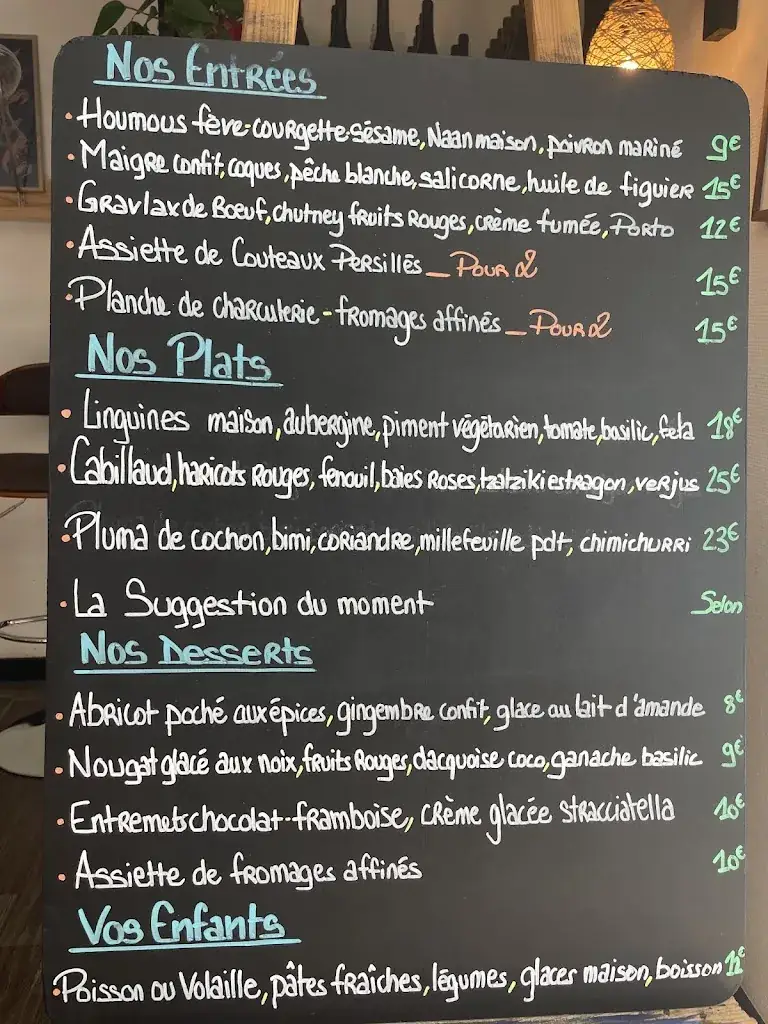 Nos Entrées
· Houmous fève-courgette-sésame, Naan maison, poivron mariné 9€
· Maigre confit, coques, pêche blanche, salicorne, huile de figuier 15€
· Gravlax de Boeuf, chutney fruits Rouges, crème fumée, Porto 12€
· Assiette de Couteaux Persillés _ Pour 2 15€
· Planche de charcuterie - fromages affinés _ Pour 2 15€
Nos Plats
· Linguines maison, aubergine, piment végétarien, tomate, basilic, feta 18€
· Cabillaud, haricots Rouges, fenouil, baies Roses, tzatziki estragon, verjus 25€
· Pluma de cochon, bimi, coriandre, millefeuille pdt, chimichurri 23€
· La Suggestion du moment Selon
Nos Desserts
· Abricot poché aux épices, gingembre confit, glace au lait d'amande 8€
· Nougat glacé aux noix, fruits Rouges, dacquoise coco, ganache basilic 9€
· Entremets chocolat-framboise, crème glacée stracciatella 10€
· Assiette de fromages affinés 10€
Vos Enfants
· Poisson ou Volaille, pâtes fraîches, légumes, glaces maison, boisson 12€